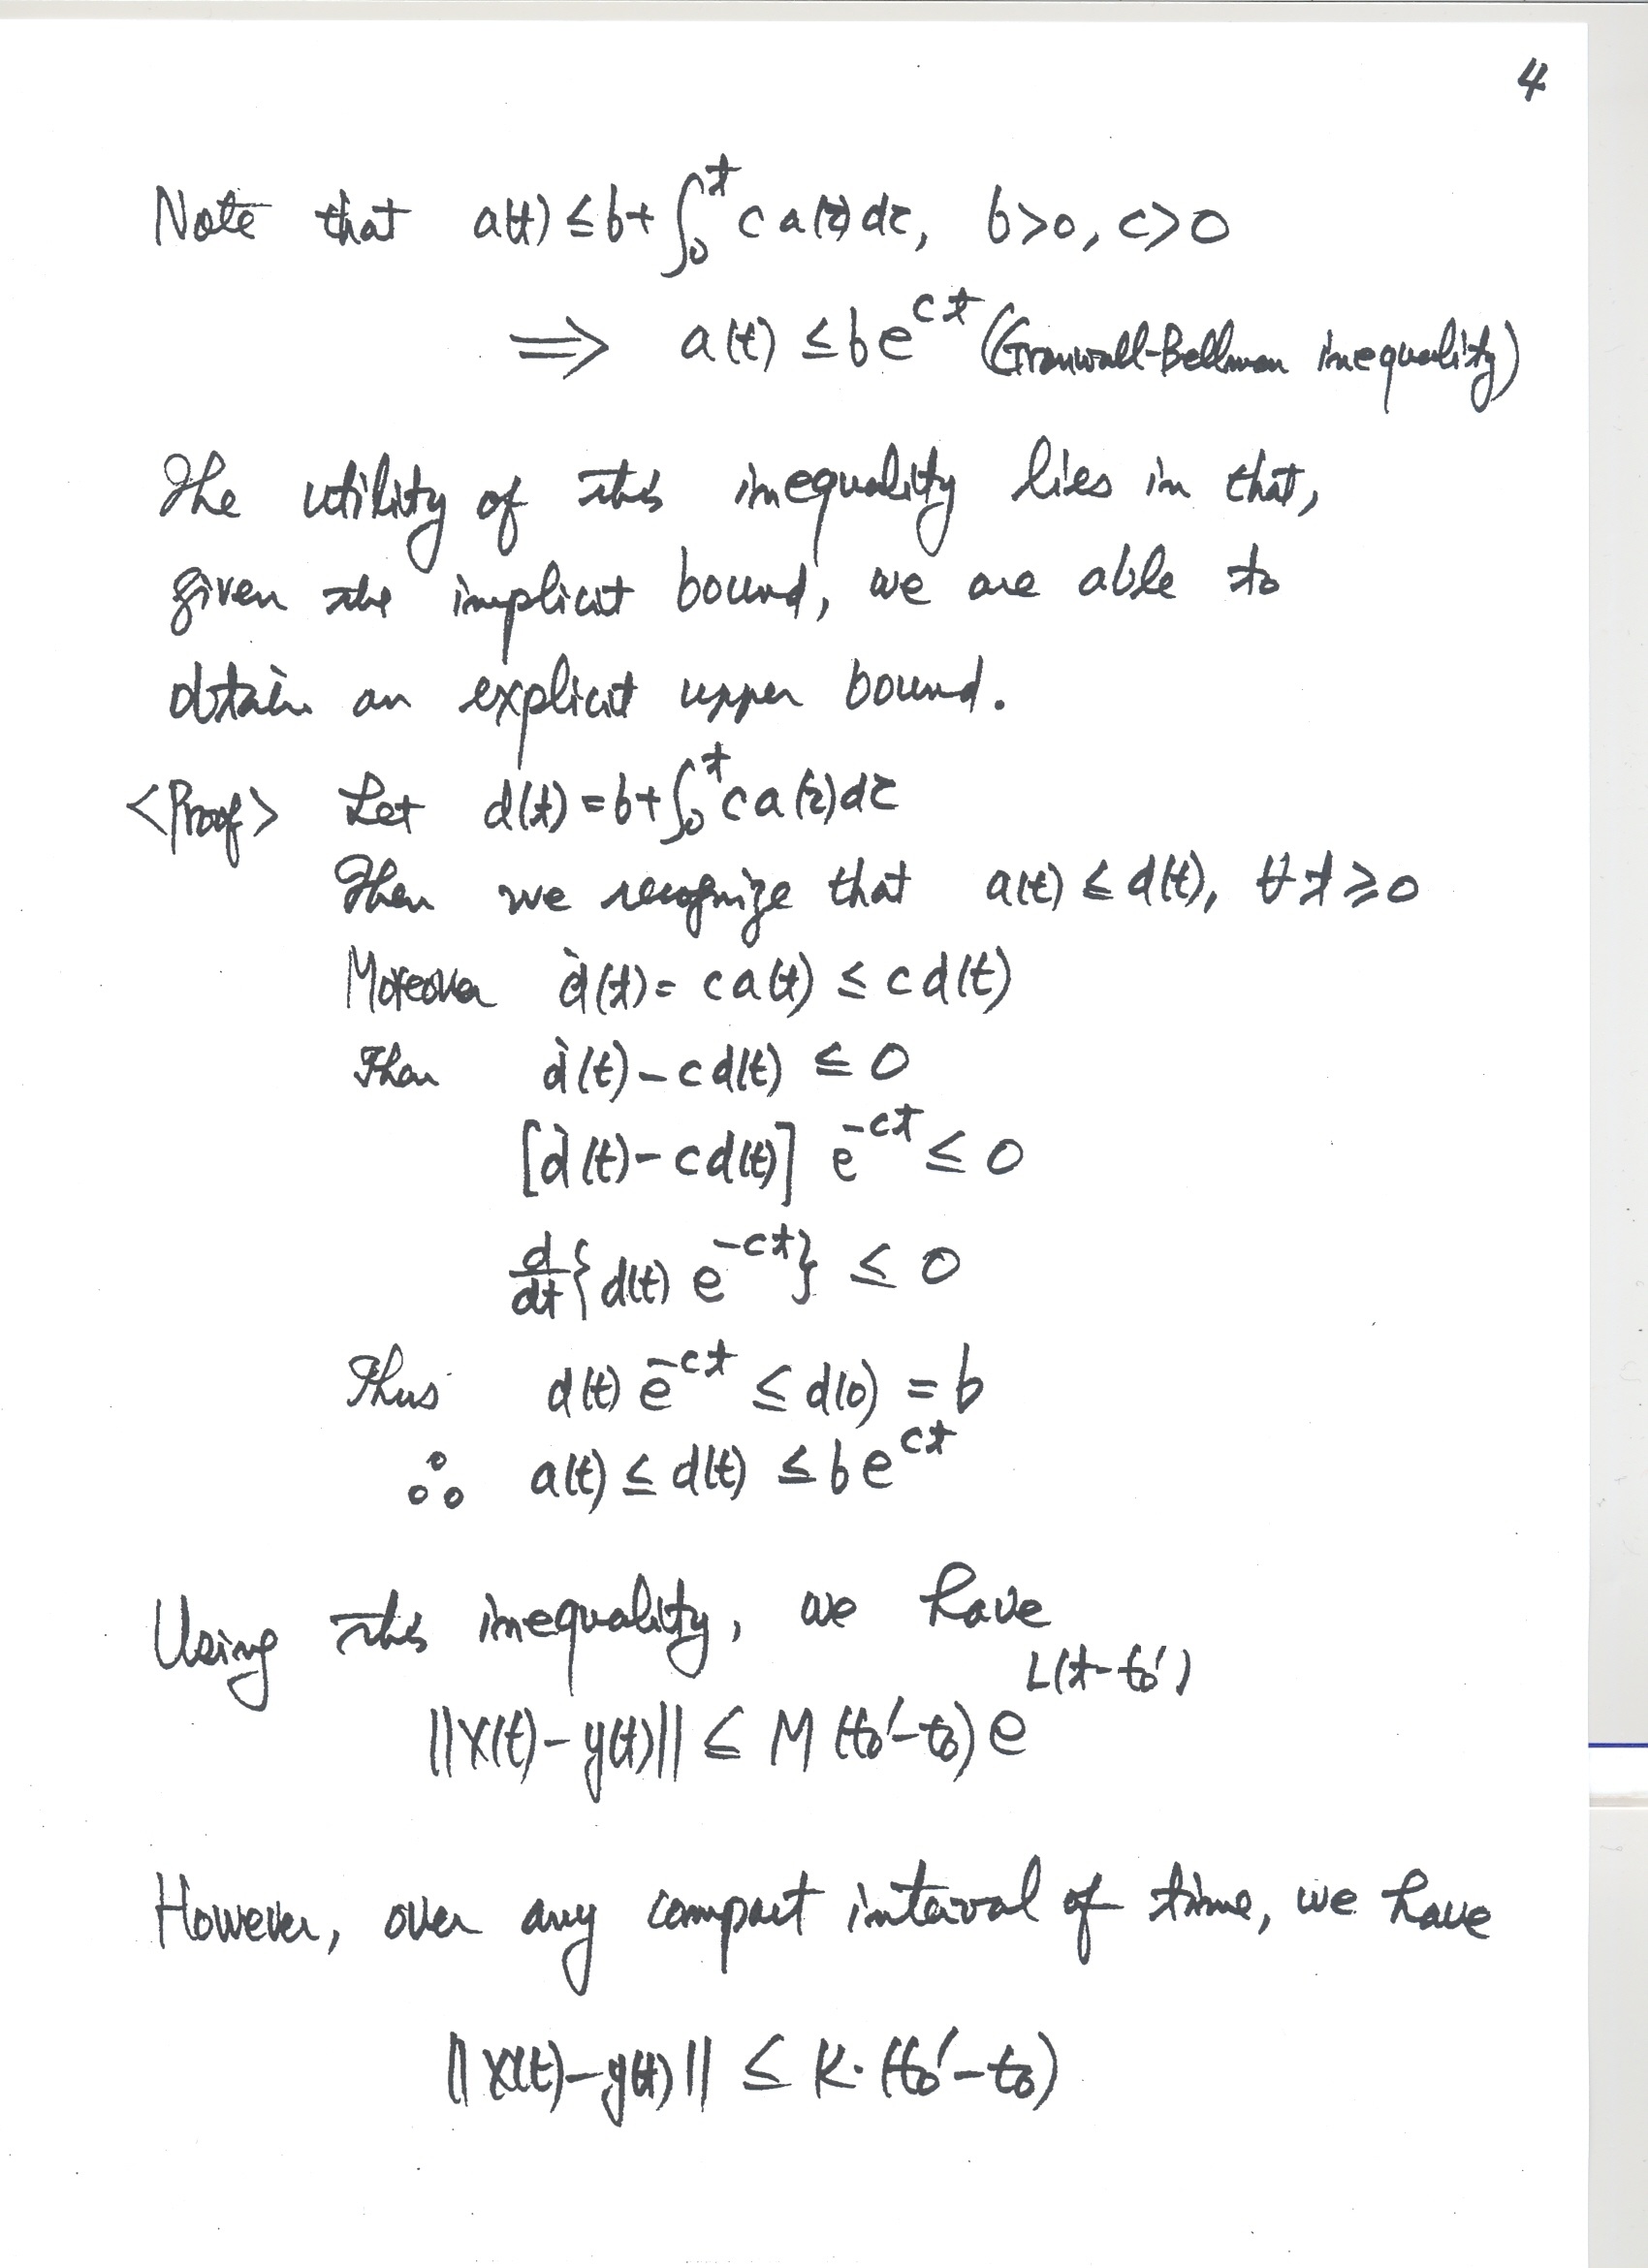 4
Note that a(t) ≤ b + ∫₀ᵗ c a(τ) dτ, b>0, c>0
⟹ a(t) ≤ b e^{ct} (Gronwall-Bellman inequality)
The utility of this inequality lies in that,
given the implicit bound, we are able to
obtain an explicit upper bound.
<Proof> Let d(t) = b + ∫₀ᵗ c a(τ) dτ
Then we recognize that a(t) ≤ d(t), ∀ t ≥ 0
Moreover ḋ(t) = c a(t) ≤ c d(t)
Then ḋ(t) - c d(t) ≤ 0
[ḋ(t) - c d(t)] e^{-ct} ≤ 0
d/dt {d(t) e^{-ct}} ≤ 0
Thus d(t) e^{-ct} ≤ d(0) = b
∴ a(t) ≤ d(t) ≤ b e^{ct}
Using this inequality, we have
||x(t) - y(t)|| ≤ M (t₀' - t₀) e^{L(t - t₀')}
However, over any compact interval of time, we have
||x(t) - y(t)|| ≤ K · (t₀' - t₀)